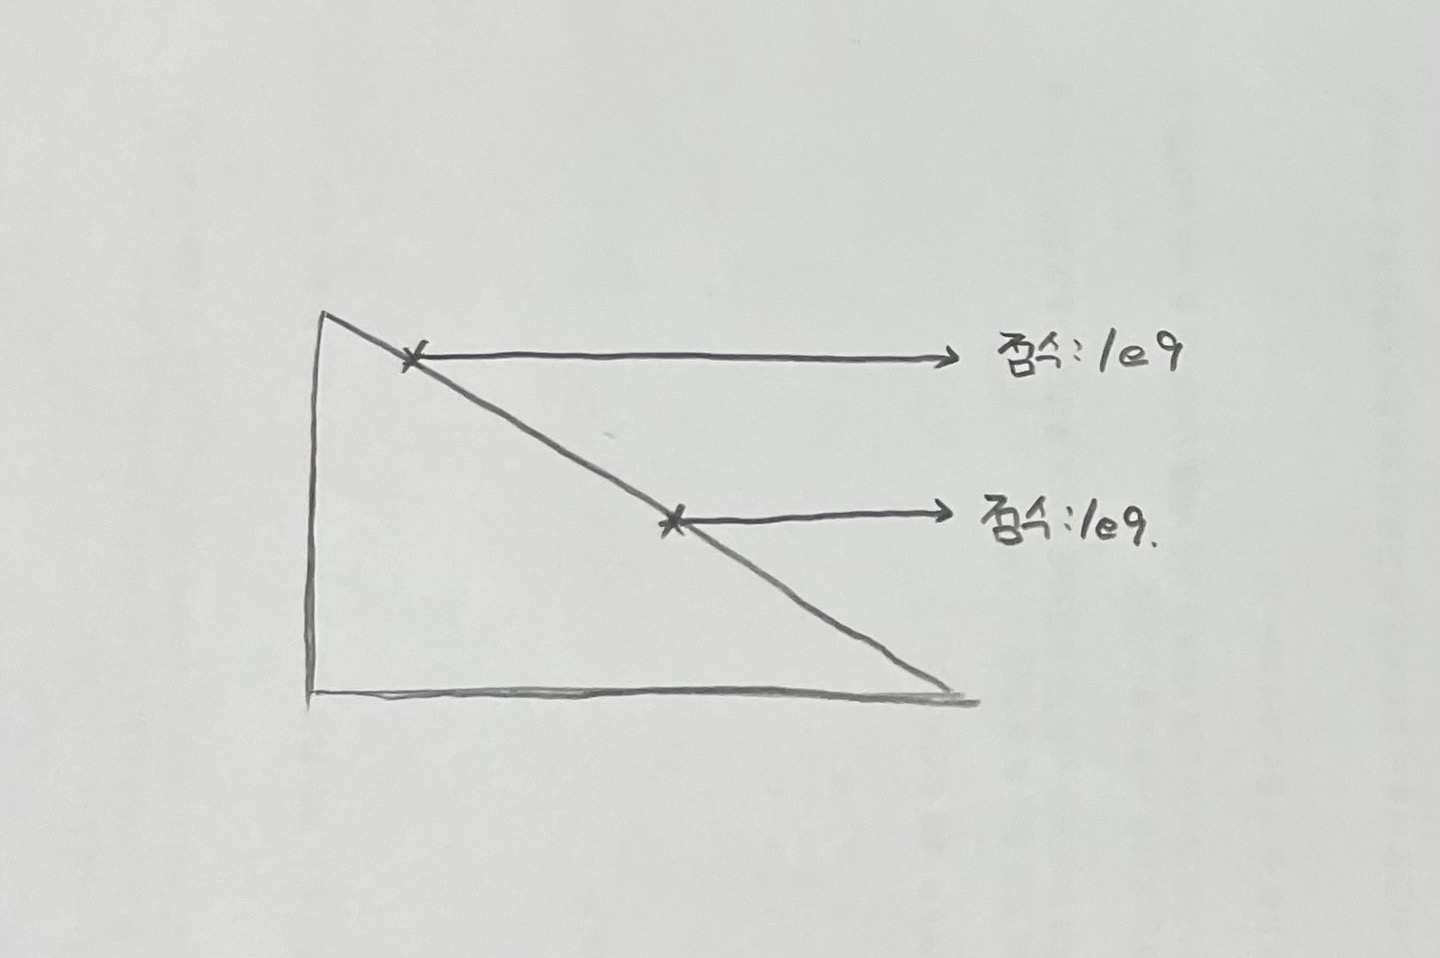 점수: 1e9
점수: 1e9.